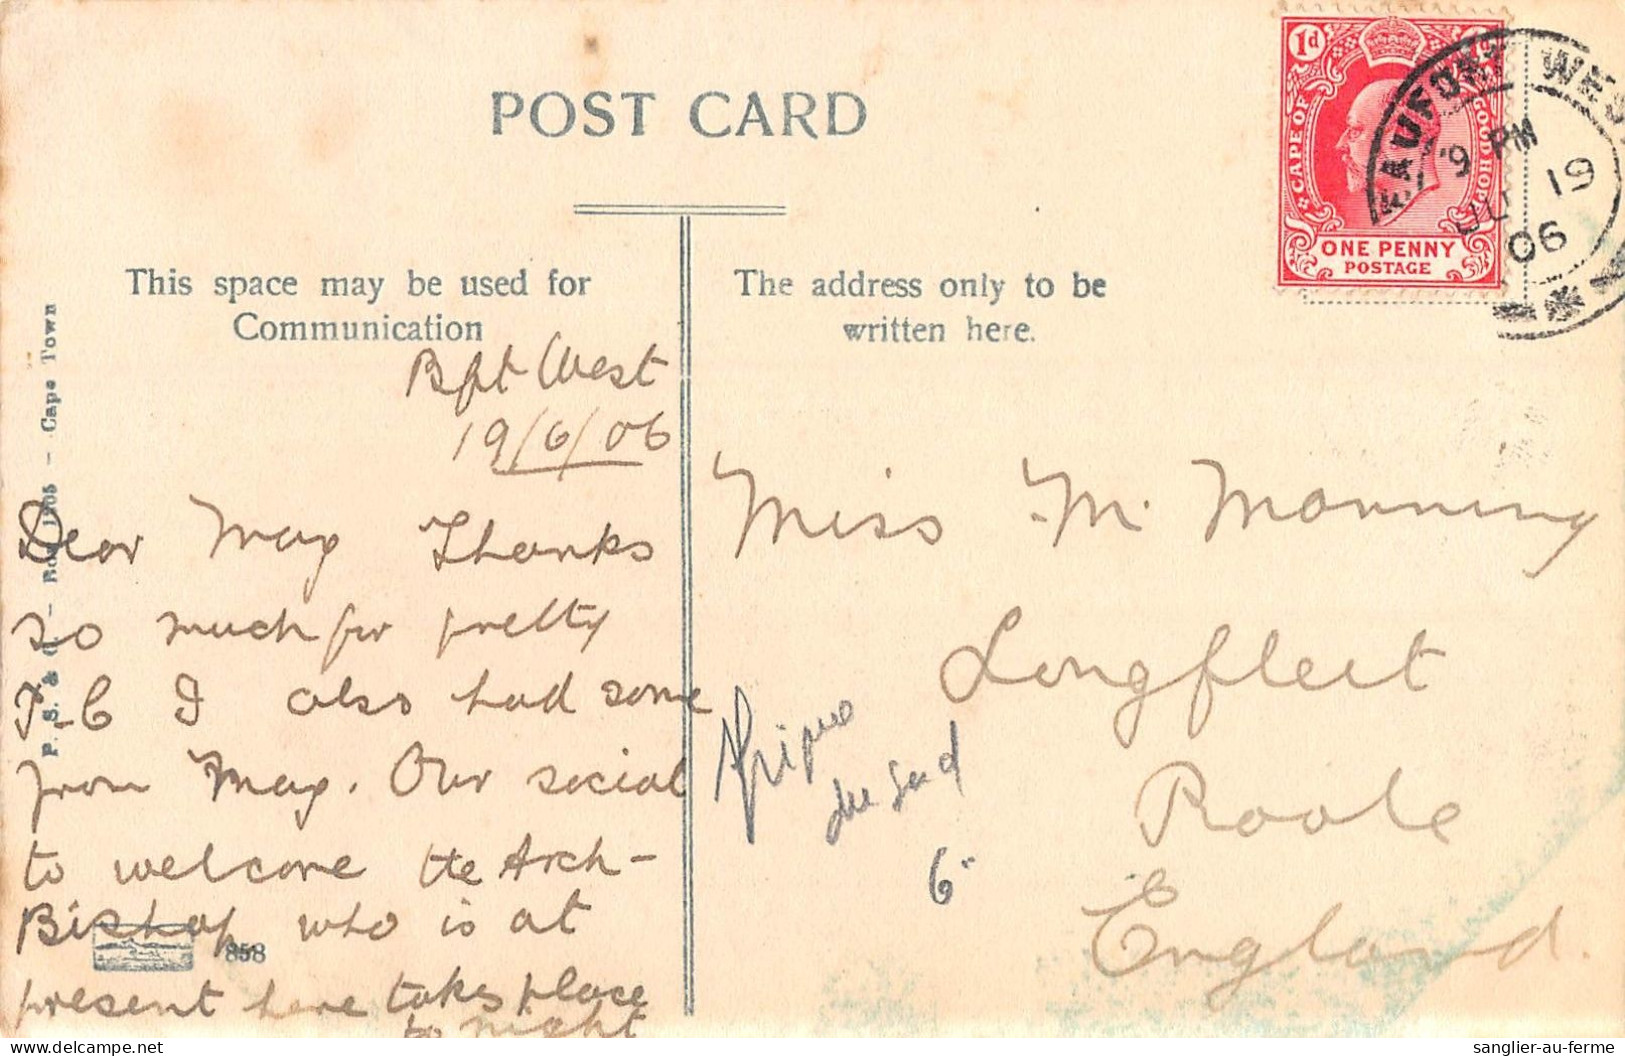 POST CARD
This space may be used for
Communication
The address only to be
written here.
1d
CAPE OF GOOD HOPE
ONE PENNY
POSTAGE
BEAUFORT WEST
9 PM
JU 19
06
Bft West
19/6/06
Dear May Thanks
so much for pretty
P-C I also had some
from May. Our social
to welcome the Arch-
Bishop who is at
present here takes place
to night
Miss M. Manning
Longfleet
Poole
England.
Afrique
du Sud
6-
P. S. & C. - 1905 - Cape Town
858
sanglier-au-ferme